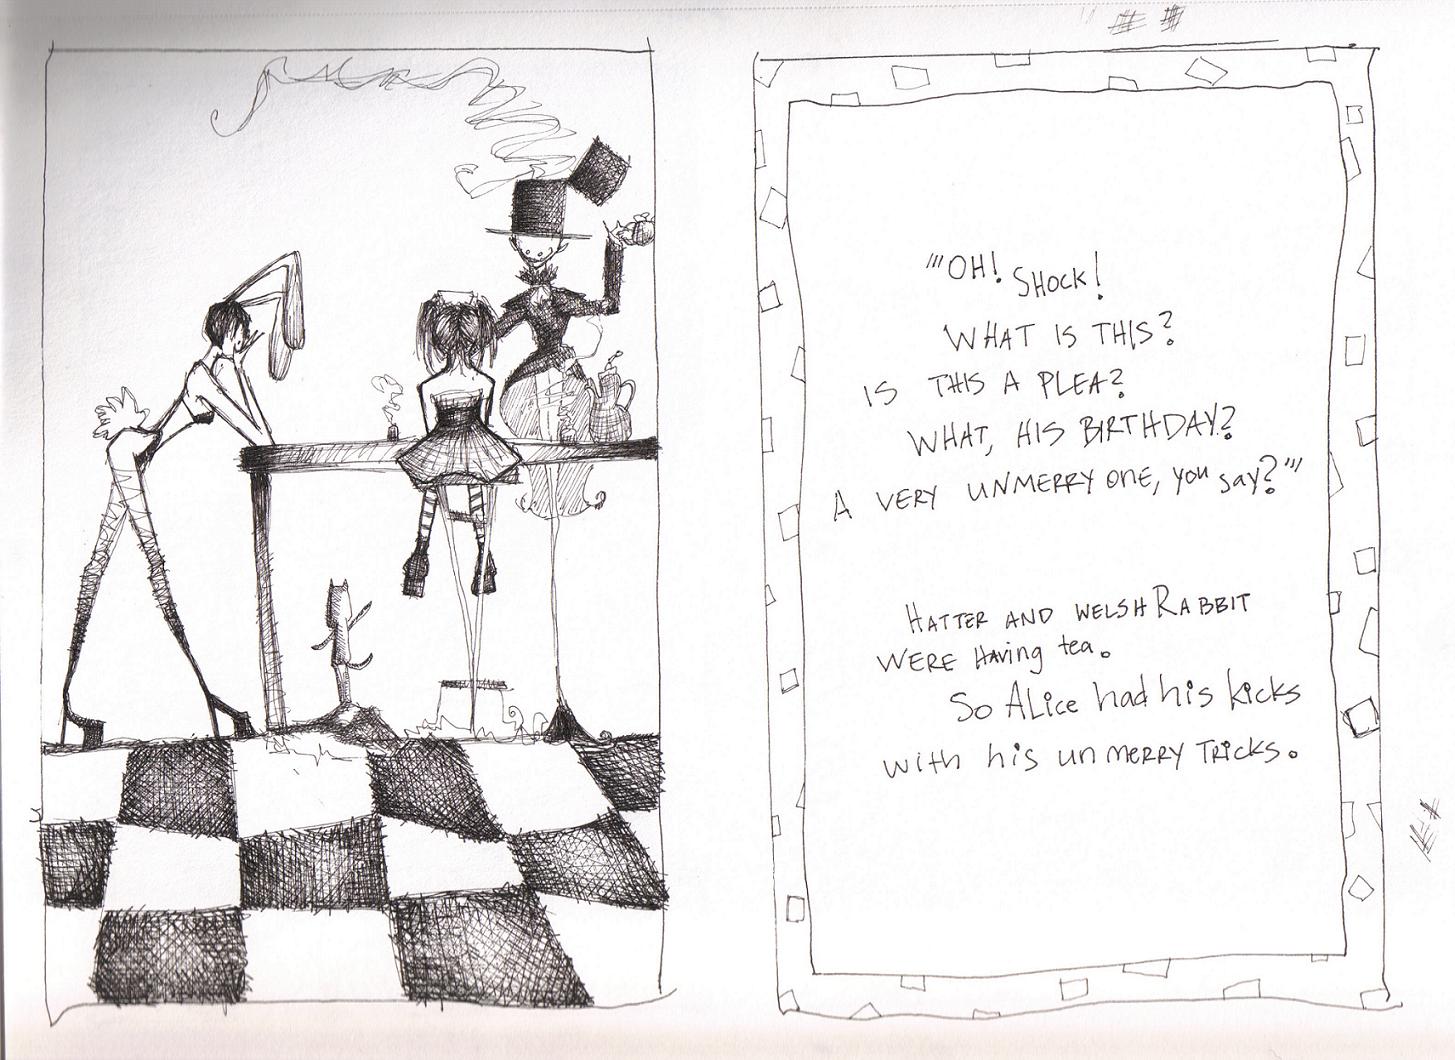 "'OH! SHOCK!
WHAT IS THIS?
IS THIS A PLEA?
WHAT, HIS BIRTHDAY?
A VERY UNMERRY ONE, you say?"'
HATTER AND WELSH RABBIT
WERE HAving tea.
So ALice had his kicks
with his unmerry Tricks.